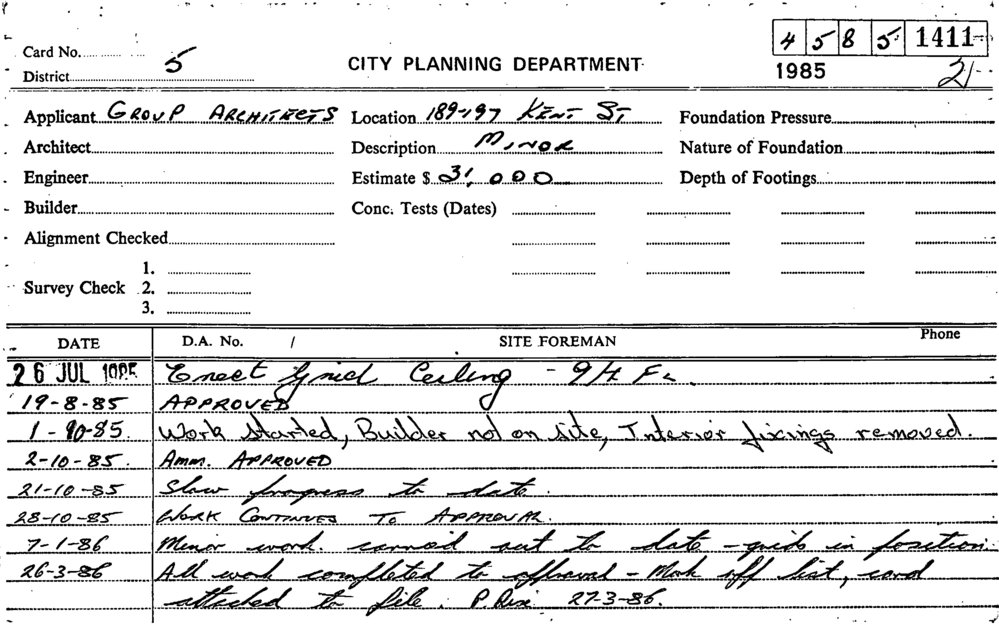 4 5 8 5 1411
Card No.
District 5
CITY PLANNING DEPARTMENT
1985 21
Applicant GROUP ARCHITECTS Location 189-197 KENT ST Foundation Pressure
Architect Description MINOR Nature of Foundation
Engineer Estimate $ 31,000 Depth of Footings
Builder Conc. Tests (Dates)
Alignment Checked
1.
Survey Check 2.
3.
DATE D.A. No. / SITE FOREMAN Phone
26 JUL 1985 Erect grid Ceiling - 9th FL.
19-8-85 APPROVED
1-10-85. Work started, Builder not on site, Interior fixings removed.
2-10-85. Amm. APPROVED
21-10-85 Slow progress to date.
28-10-85 WORK CONTINUES TO APPROVAL.
7-1-86 Minor work. carried out to date - grids in position
26-3-86 All work completed to approval - Mark off list, card
attached to file. P. 27-3-86.